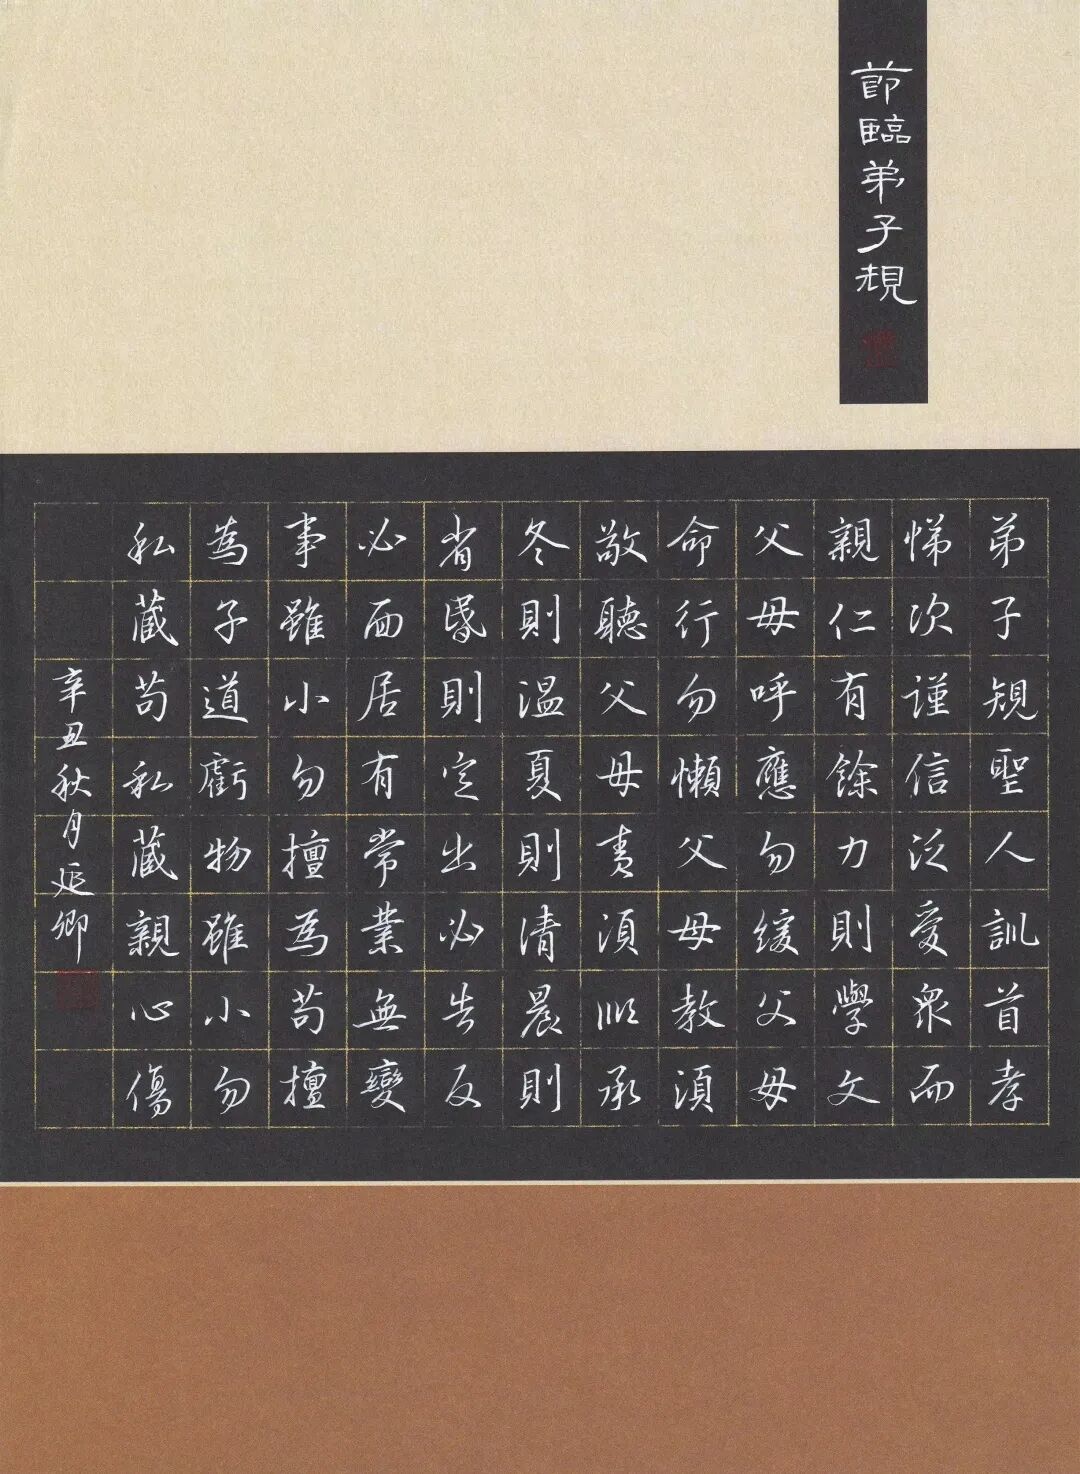 節臨弟子規
弟子規聖人訓首孝
悌次謹信泛愛衆而
親仁有餘力則學文
父母呼應勿緩父母
命行勿懶父母教須
敬聽父母責須順承
冬則溫夏則凊晨則
省昏則定出必告反
必面居有常業無變
事雖小勿擅為苟擅
為子道虧物雖小勿
私藏苟私藏親心傷
辛丑秋月延卿